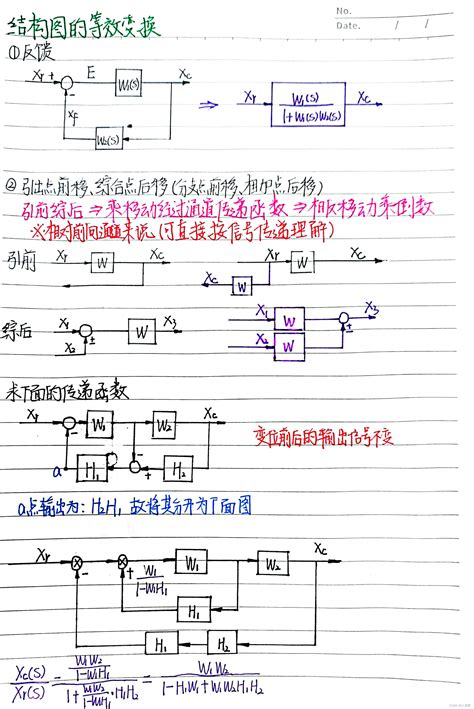 No.
Date. / /
结构图的等效变换
①反馈
Xr + E W₁(s) Xc
- Xf W₂(s)
⇒ Xr W₁(s) / 1+W₁(s)W₂(s) Xc
②引出点前移、综合点后移(分支点前移、相加点后移)
引前综后⇒乘移动经过通道传递函数⇒相反移动乘倒数
※相对前向通道来说(可直接按信号传递理解)
引前 Xr W Xc Xr W Xc
Xc W
综后 X₁ W X₃ X₁ W X₃
X₂ ± X₂ W ±
求下面的传递函数
Xr W₁ W₂ Xc
- - 变位前后的输出信号不变
a H₁ + H₂
a点输出为: H₂H₁ 故将其分开为下面图
Xr + W₁ W₂ Xc
- W₁ / 1-W₁H₁
H₁
H₁ H₂
Xc(S) / Xr(S) = W₁W₂ / 1-W₁H₁ / 1+ W₁W₂ / 1-W₁H₁ ·H₁H₂ = W₁W₂ / 1-H₁W₁+W₁W₂H₁H₂